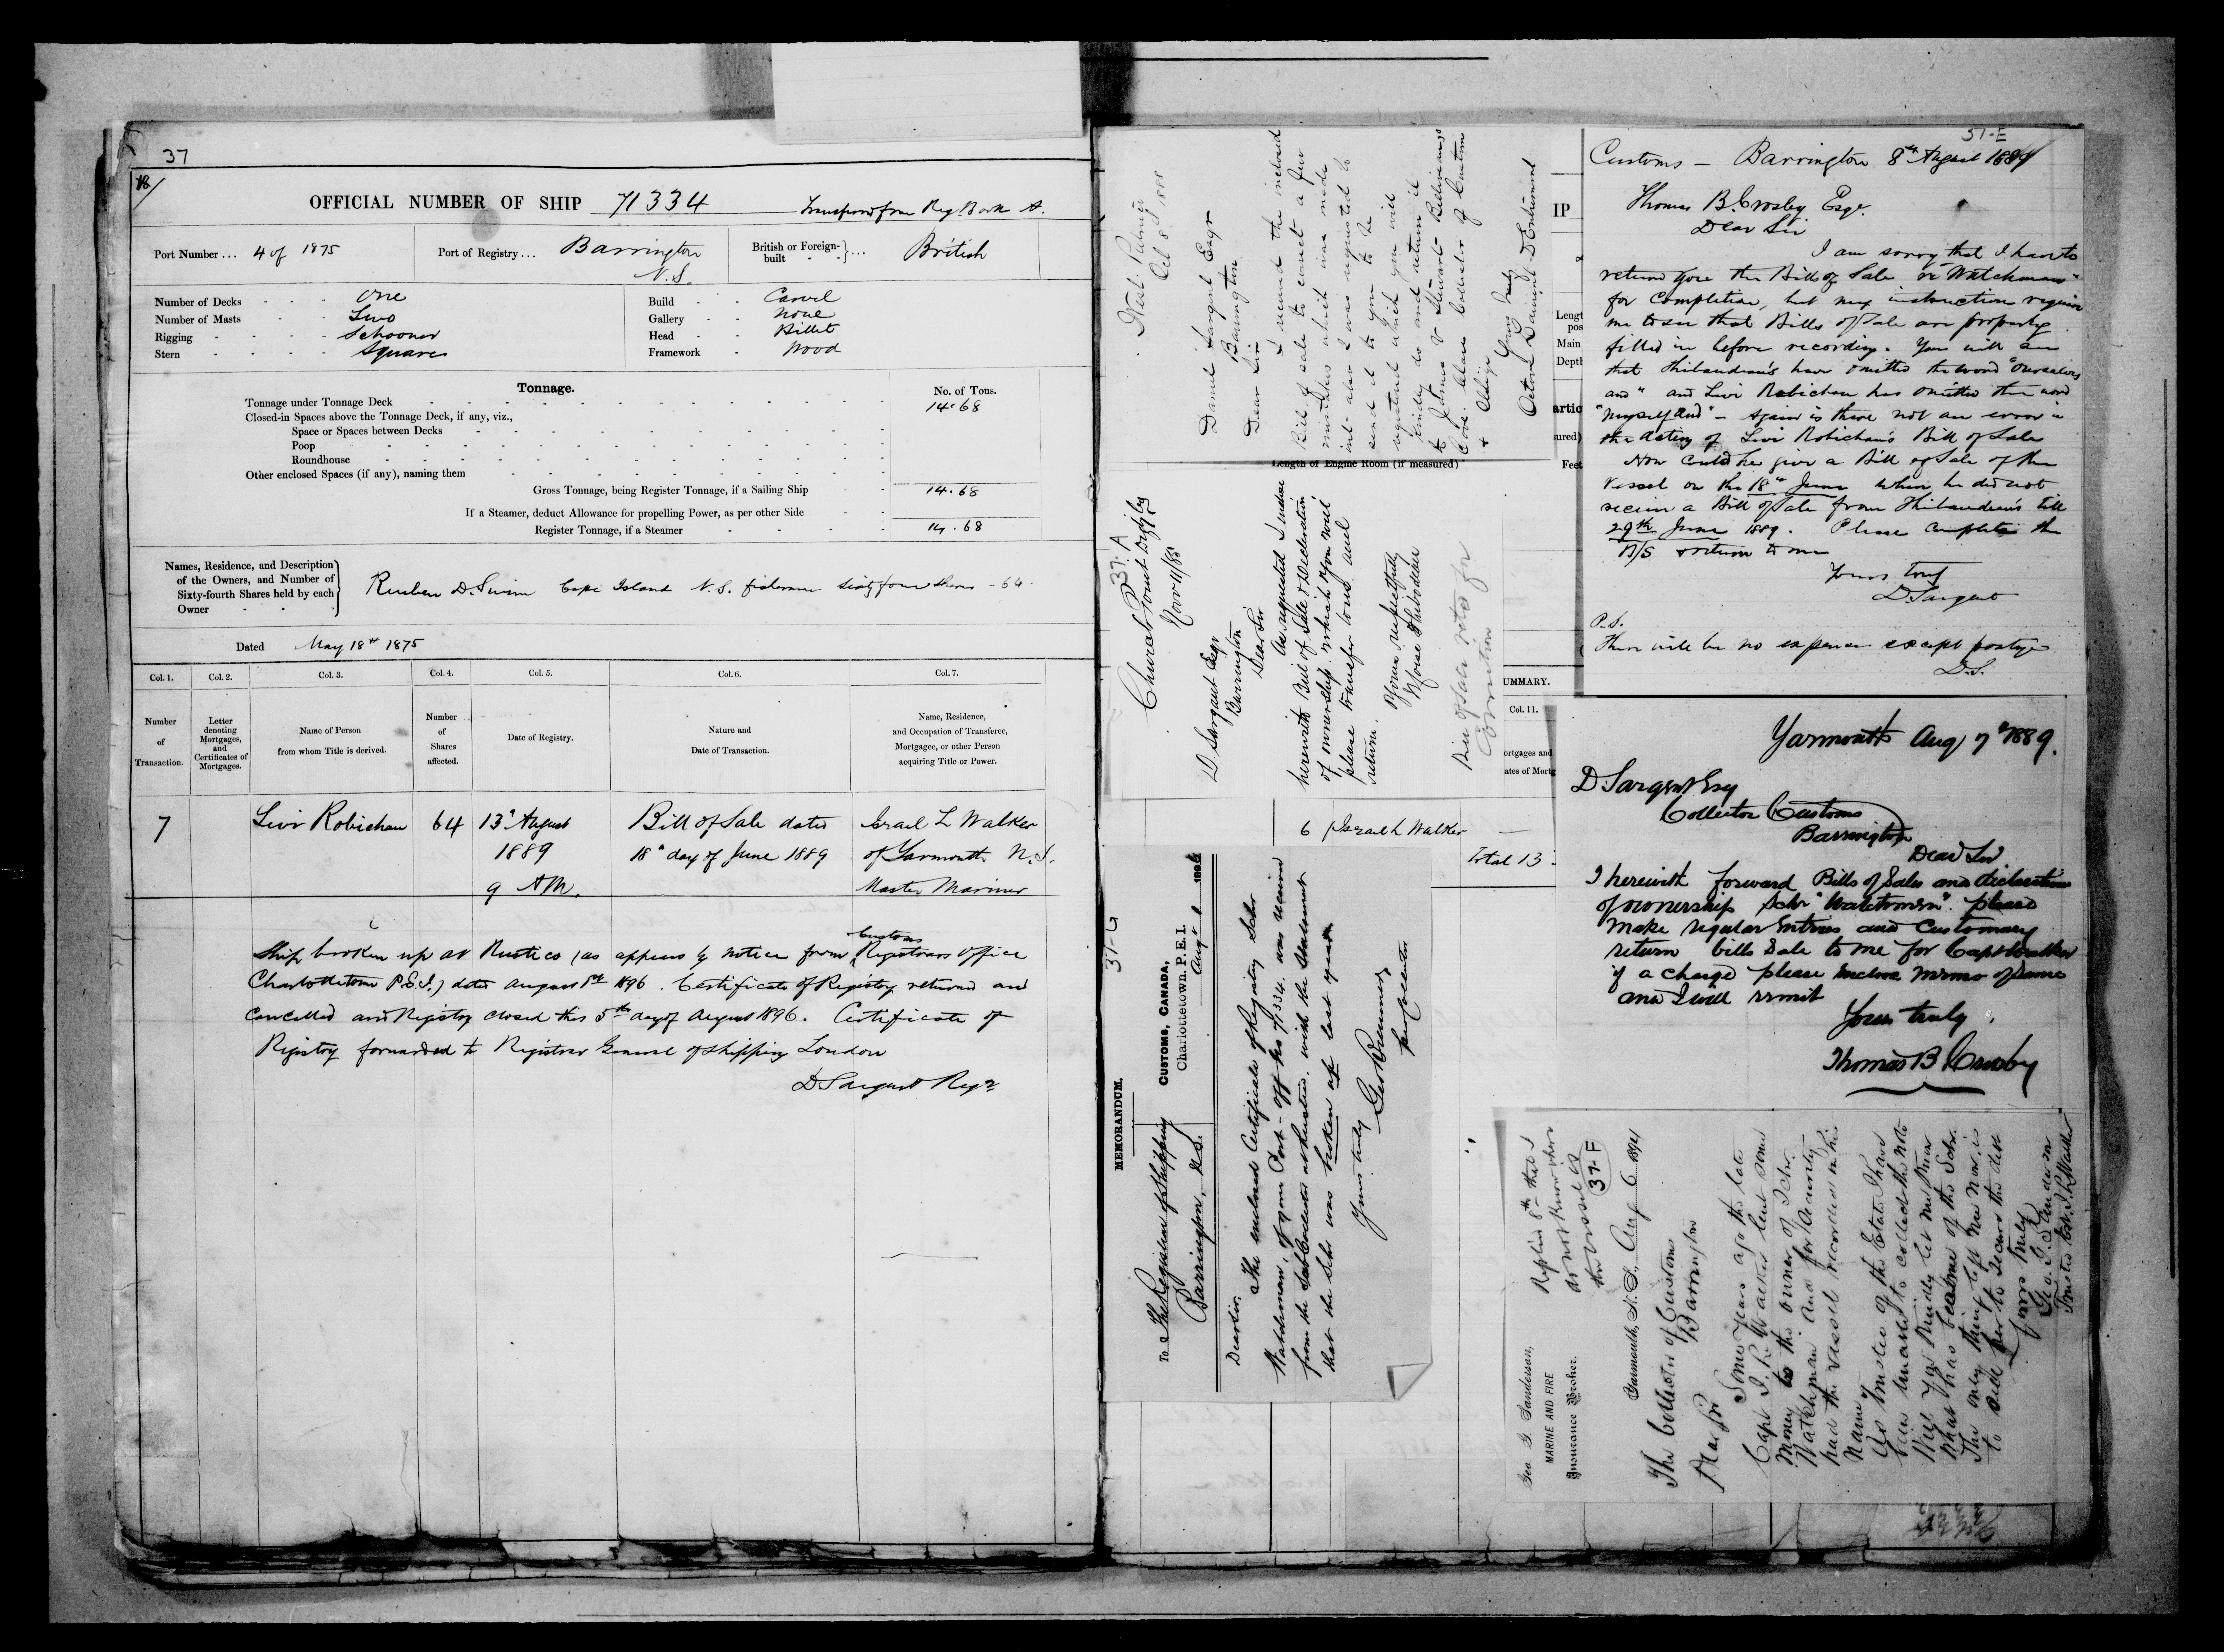 37
18/
OFFICIAL NUMBER OF SHIP 71334 Transferred from Reg. Book A.
Port Number ... 4 of 1875 Port of Registry ... Barrington N.S. British or Foreign-built ... British
Number of Decks One Build Carvel
Number of Masts Two Gallery None
Rigging Schooner Head Billet
Stern Square Framework Wood
Tonnage. No. of Tons.
Tonnage under Tonnage Deck 14.68
Closed-in Spaces above the Tonnage Deck, if any, viz.,
Space or Spaces between Decks
Poop
Roundhouse
Other enclosed Spaces (if any), naming them
Gross Tonnage, being Register Tonnage, if a Sailing Ship 14.68
If a Steamer, deduct Allowance for propelling Power, as per other Side
Register Tonnage, if a Steamer 14.68
Names, Residence, and Description
of the Owners, and Number of
Sixty-fourth Shares held by each
Owner
Reuben D. Swim Cape Island N.S. fisherman sixty four shares - 64
Dated May 18th 1875
Col. 1. Col. 2. Col. 3. Col. 4. Col. 5. Col. 6. Col. 7.
Number of Transaction.
Letter denoting Mortgages, and Certificates of Mortgages.
Name of Person from whom Title is derived.
Number of Shares affected.
Date of Registry.
Nature and Date of Transaction.
Name, Residence, and Occupation of Transferee, Mortgagee, or other Person acquiring Title or Power.
7 Levi Robichau 64 13th August Bill of Sale dated Israel L Walker
1889 18th day of June 1889 of Yarmouth N.S.
9 AM. Master Mariner
Ship broken up at Rustico (as appears by notice from Customs Registrars Office
Charlottetown P.E.I.) dated August 1st 1896. Certificate of Registry returned and
Cancelled and Registry closed this 5th day of August 1896. Certificate of
Registry forwarded to Registrar General of Shipping London
D Sargent Regr
West Pubnico
Oct 8th 1888
Daniel Sargent Esqr
Barrington
Dear Sir
I received the inclosed
Bill of sale to correct a few
mistakes which was made
int also I was requested to
send it to you to be
registered which you will
kindly do and return it
to James & Stewart
Care Collector of Customs
& oblige
Yours truly
Length of Engine Room (if measured)
37-A
Church Point Digby Co
Novr 11/88
D. Sargent Esqr
Barrington
Dear Sir
As requested I inclose
herewith Bill of Sale & Declaration
of ownership which you will
please transfer and
return.
Yours respectfully
Thibodeau
Bill of Sale retd for
Correction
IP
Main
Feet
UMMARY.
Col. 11.
ortgages and
ates of Mortg
6 Israel L Walker —
Total 13
37-G
MEMORANDUM.
CUSTOMS, CANADA,
Charlottetown, P.E.I.
Augt 1 1896
To The Registrar of Shipping
Barrington, N.S.
Dear Sir.
The enclosed Certificate of Registry Schr
Watchman, of your Port - Off No 71,334. was received
from the Sub-Collector at Rustico. with the statement
that the Schr was broken up last year
Yours truly
37-E
Customs — Barrington 8th August 1889
Thomas B. Crosby Esqr.
Dear Sir
I am sorry that I have to
return you the Bill of Sale re "Watchman"
for completion, but my instruction require
me to see that Bills of Sale are properly
filled in before recording. You will see
that Thibaudeau's have omitted the word "Ourselves
and" and Levi Robichau has omitted the word
"Myself and" - Again is there not an error in
the dating of Levi Robichau's Bill of Sale
How could he give a Bill of Sale of the
Vessel on the 18th June when he did not
receive a Bill of Sale from Thibaudeau's till
29th June 1889. Please complete the
B/S & return to me
Yours truly
D Sargent
P.S.
There will be no expense except postage
D.S.
Yarmouth Aug 7th 1889.
D Sargent Esq
Collector Customs
Barrington
Dear Sir
I herewith forward Bills of Sales and declaration
of ownership Schr "Watchman". please
make regular Entries and Customary
return bills Sale to me for Capt Walker
if a charge please enclose memo of same
and I will remit
Yours truly,
Thomas B Crosby
Replied 8th that I
do not know where
the vessel is
37-F
Geo. G. Sanderson,
MARINE AND FIRE
Insurance Broker.
Yarmouth, N.S., Aug 6 1894
The Collector of Customs
Barrington
Dear Sir
Some years ago the late
Capt. I. L. Walker lent some
money to the owner of Schr.
Watchman and for security
had the vessel recorded in his
name.
As trustee of the Estate I have
been unable to collect the note
Will you kindly let me know
what has become of the Schr.
The only thing left me now is
to sell her to secure the debt
Yours truly
Geo. G. Sanderson
Trustee Est. I. L. Walker